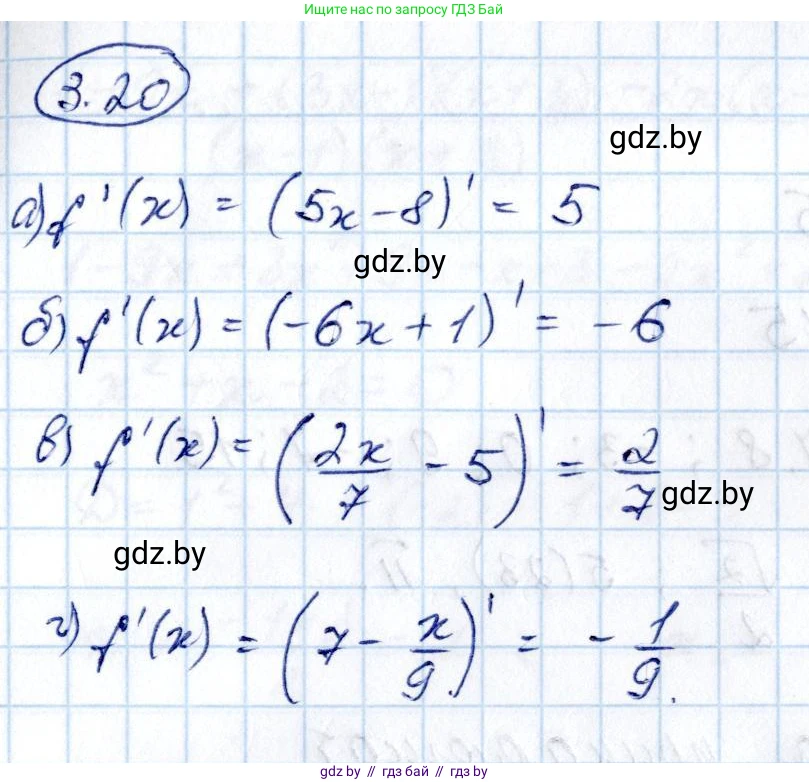 Ищите нас по запросу ГДЗ Бай
3.20
gdz.by
а) f'(x) = (5x - 8)' = 5
gdz.by
б) f'(x) = (-6x + 1)' = -6
в) f'(x) = (2x/7 - 5)' = 2/7
gdz.by
gdz.by
г) f'(x) = (7 - x/9)' = -1/9.
gdz.by // гдз бай // гдз by